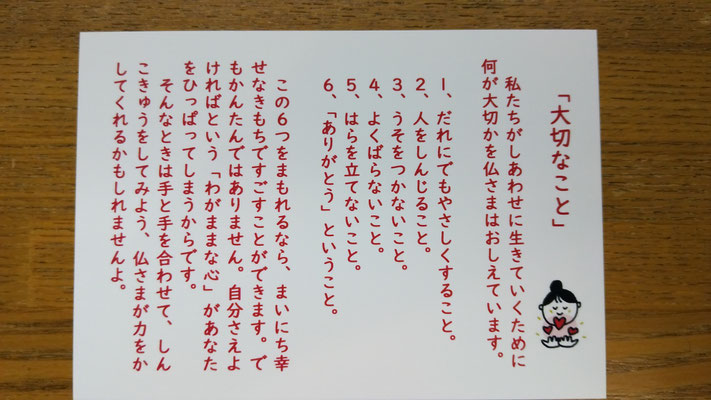 「大切なこと」
私たちがしあわせに生きていくために
何が大切かを仏さまはおしえています。
1、だれにでもやさしくすること。
2、人をしんじること。
3、うそをつかないこと。
4、よくばらないこと。
5、はらを立てないこと。
6、「ありがとう」ということ。
この6つをまもれるなら、まいにち幸
せなきもちですごすことができます。で
もかんたんではありません。自分さえよ
ければという「わがままな心」があなた
をひっぱってしまうからです。
そんなときは手と手を合わせて、しん
こきゅうをしてみよう、仏さまが力をか
してくれるかもしれませんよ。